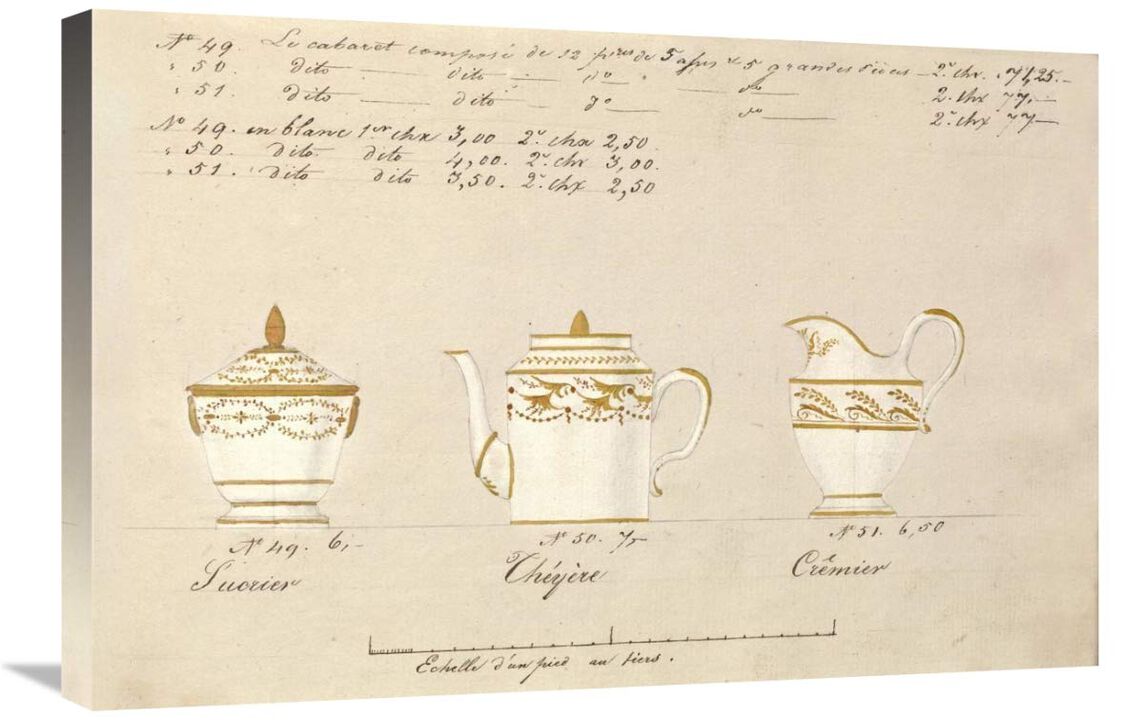 Nº 49. Le cabaret composé de 12 pres de 5 asss & 5 grandes pièces — 2.e chx. 71,25.—
" 50. dito — dito — do " — do — 2. chx 77,—
" 51. dito — dito — do — do — 2.e chx 77—
Nº 49. en blanc 1er chx 3,00 2.e chx 2,50.
" 50. dito. dito 4,00. 2.e chx 3,00.
" 51. dito dito 3,50. 2.e chx 2,50
Nº 49. 6,—
Sucrier
Nº 50. 7,—
Théyère
Nº 51. 6,50
Crêmier
Echelle d'un pied au tiers.